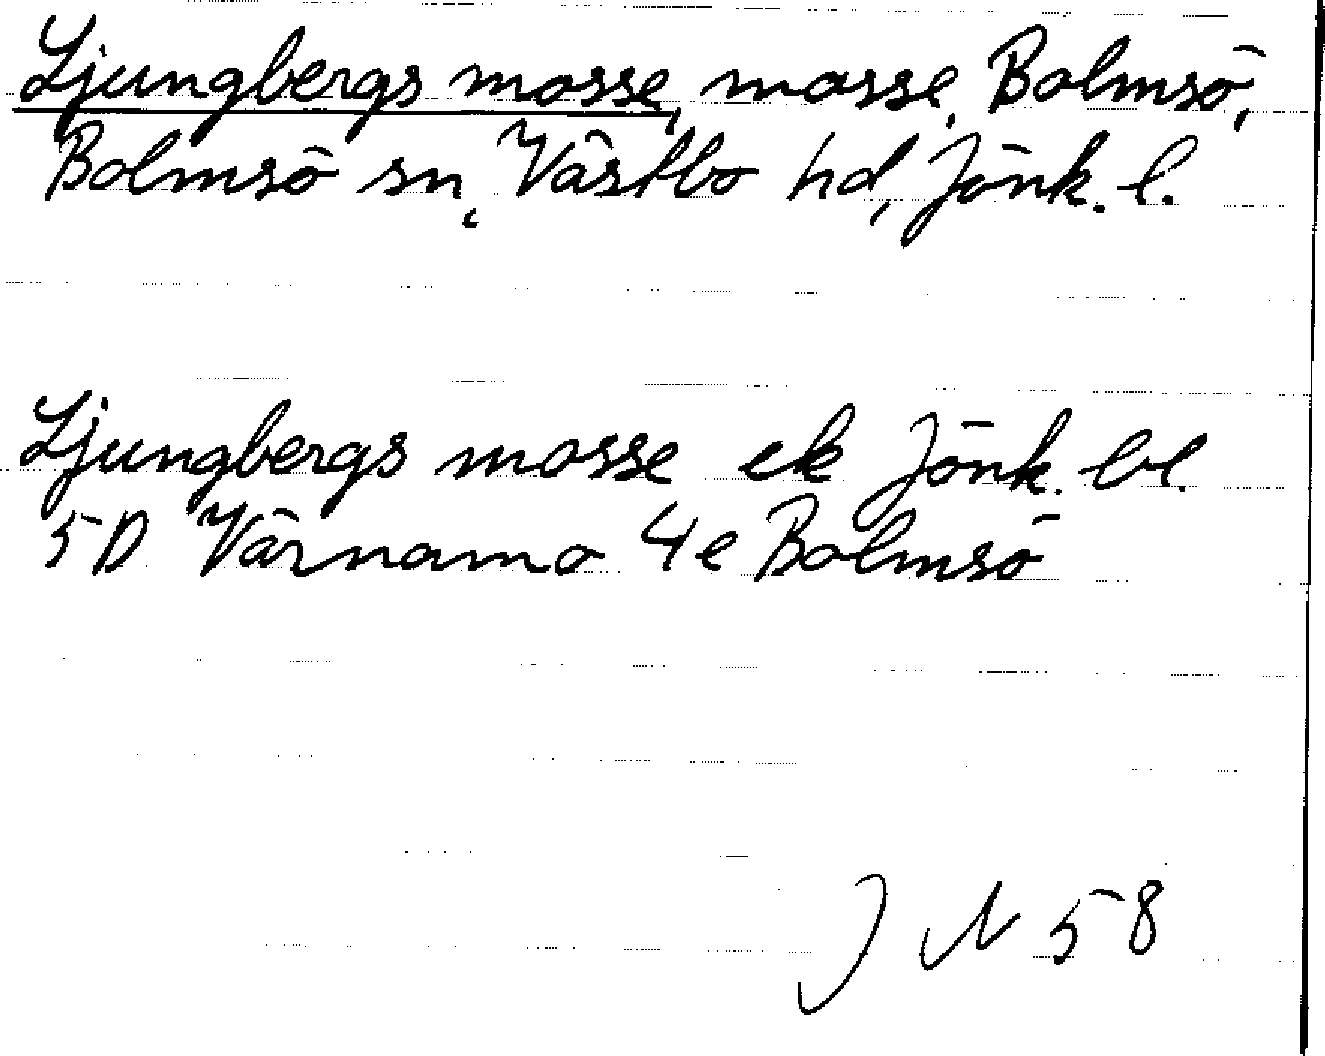 Ljungbergs mosse, mosse, Bolmsö,
Bolmsö sn, Västbo hd, Jönk. l.
Ljungbergs mosse ek Jönk. bl.
5D Värnamo 4e Bolmsö
J N 58